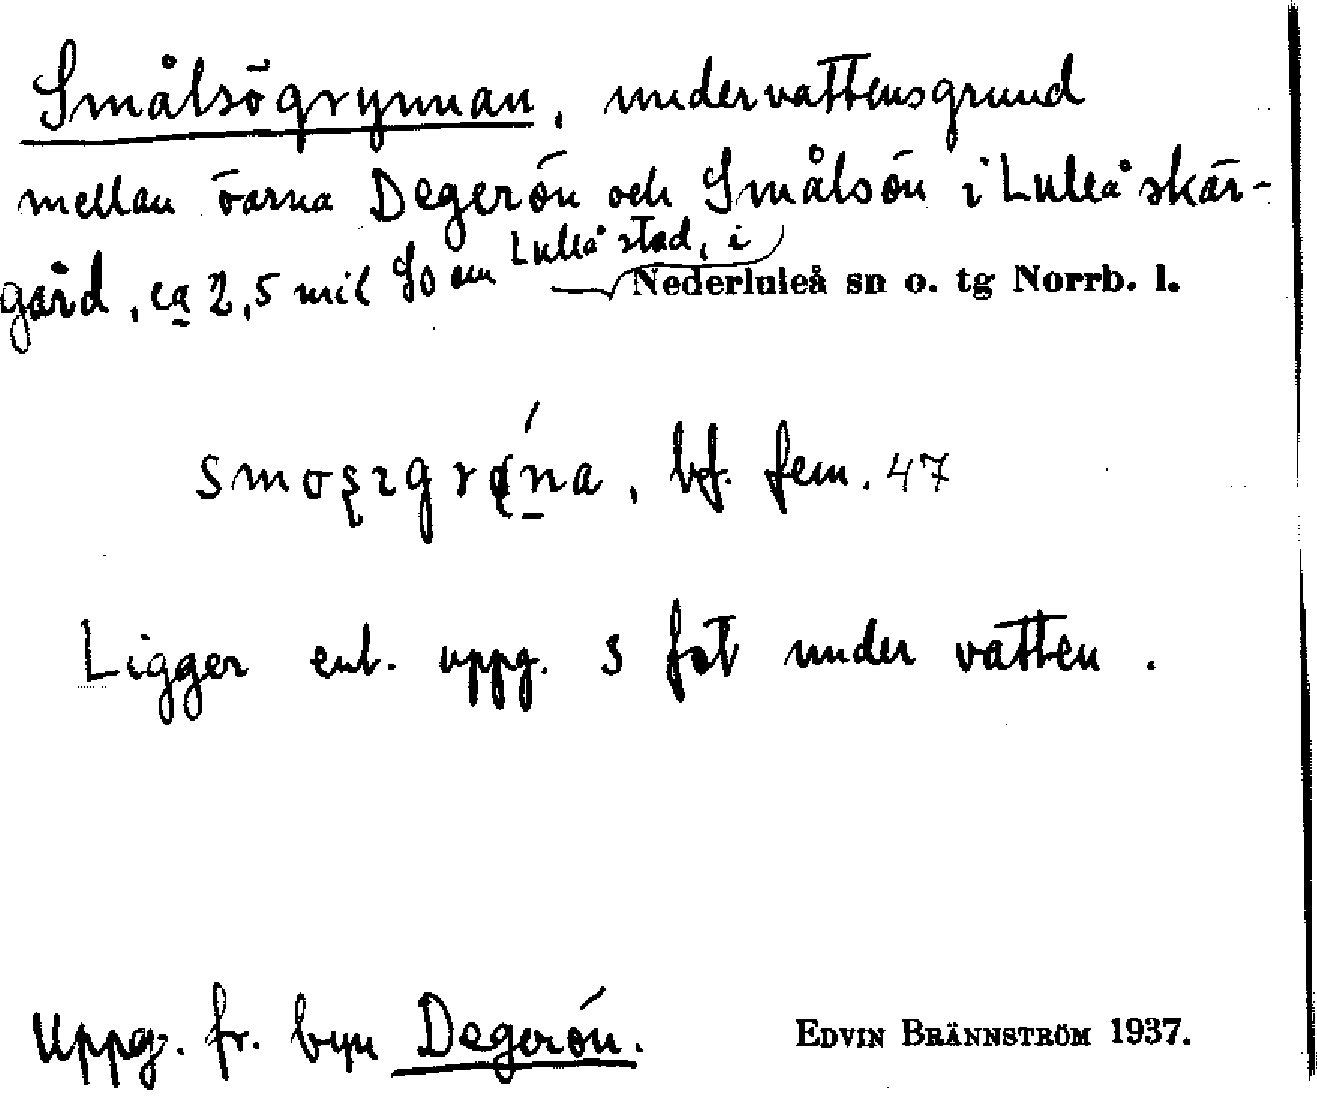 Smålsögrynnan, undervattensgrund
mellan öarna Degerön och Smålsön i Luleå skär-
gård, ca 2,5 mil SO om Luleå stad, i Nederluleå sn o. tg Norrb. l.
bf. fem. 47
Ligger enl. uppg. 3 fot under vatten.
Uppg. fr. byn Degerön. EDVIN BRÄNNSTRÖM 1937.